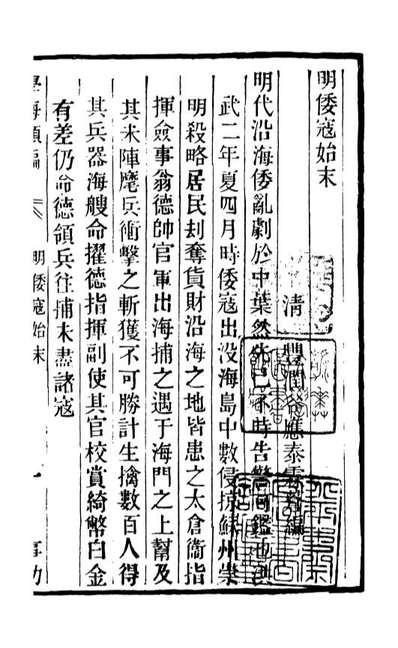 明倭寇始末
清 豐潤谷應泰霖蒼編
明代沿海倭亂劇於中葉然先已不時告警鑑也洪
武二年夏四月時倭寇出没海島中數侵掠蘇州崇
明殺略居民刦奪貨財沿海之地皆患之太倉衞指
揮僉事翁德帥官軍出海捕之遇于海門之上幫及
其未陣麾兵衝擊之斬獲不可勝計生擒數百人得
其兵器海艘命擢德指揮副使其官校賞綺幣白金
有差仍命德領兵往捕未盡諸寇
海類編 明倭寇始末 一